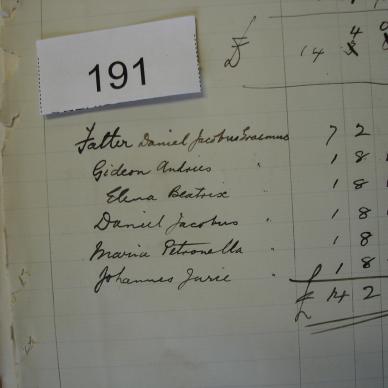 191
£ 14 8
4
Falter Daniel Jacobus Erasmus 7 2
Gideon Andries " 1 8
Elena Beatrix 1 8
Daniel Jacobus " 1 8
Maria Petronella " 1 8
Johannes Jurie " 1 8
£ 14 2